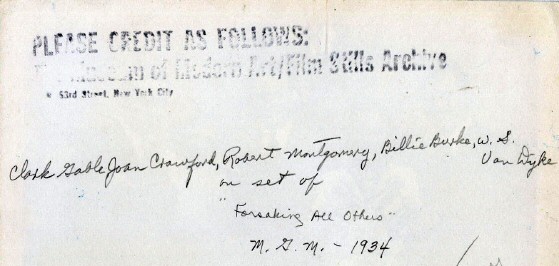 PLEASE CREDIT AS FOLLOWS:
The Museum of Modern Art/Film Stills Archive
W 53rd Street, New York City
Clark Gable Joan Crawford, Robert Montgomery, Billie Burke, W. S.
Van Dyke
on set of
"Forsaking All Others"
M. G. M. - 1934